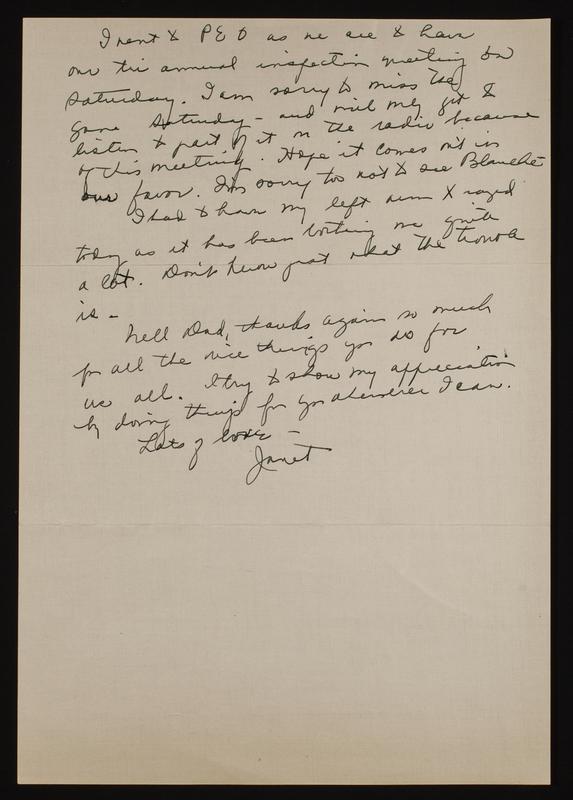 I went to PEO as we are to have
our the annual inspection meeting on
Saturday. I am sorry to miss the
game Saturday - and will only get to
listen to part of it on the radio because
of this meeting. Hope it comes out in
our favor. I'm sorry too not to see Blanche
I had to have my left arm X rayed
today as it has been bothering me quite
a lot. Don't know just what the trouble
is -
Well Dad, thanks again so much
for all the nice things you do for
us all. I try to show my appreciation
by doing things for you whenever I can.
Lots of love -
Janet